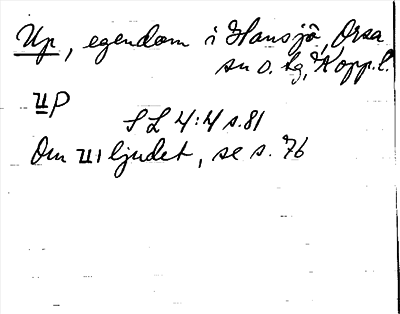 Up, egendom i Hansjö, Orsa
sn o. tg, Kopp. l.
up
S L 4:4 s. 81
Om u i ljudet, se s. 76